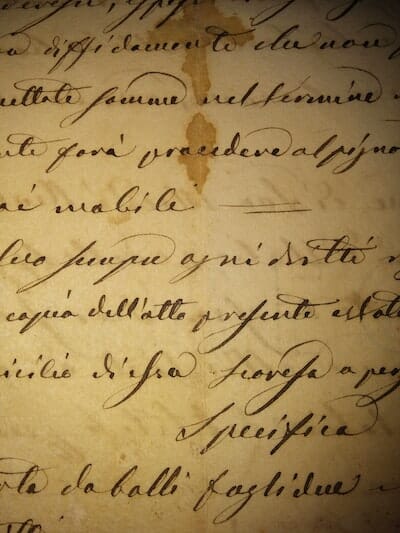 diffidamente che non
somme nel termine
farà procedere al pigno
mobili
sempre ogni diritti
copia dell'atto presente
icilio di essa a per
Specifica
rta da bolli fogli due